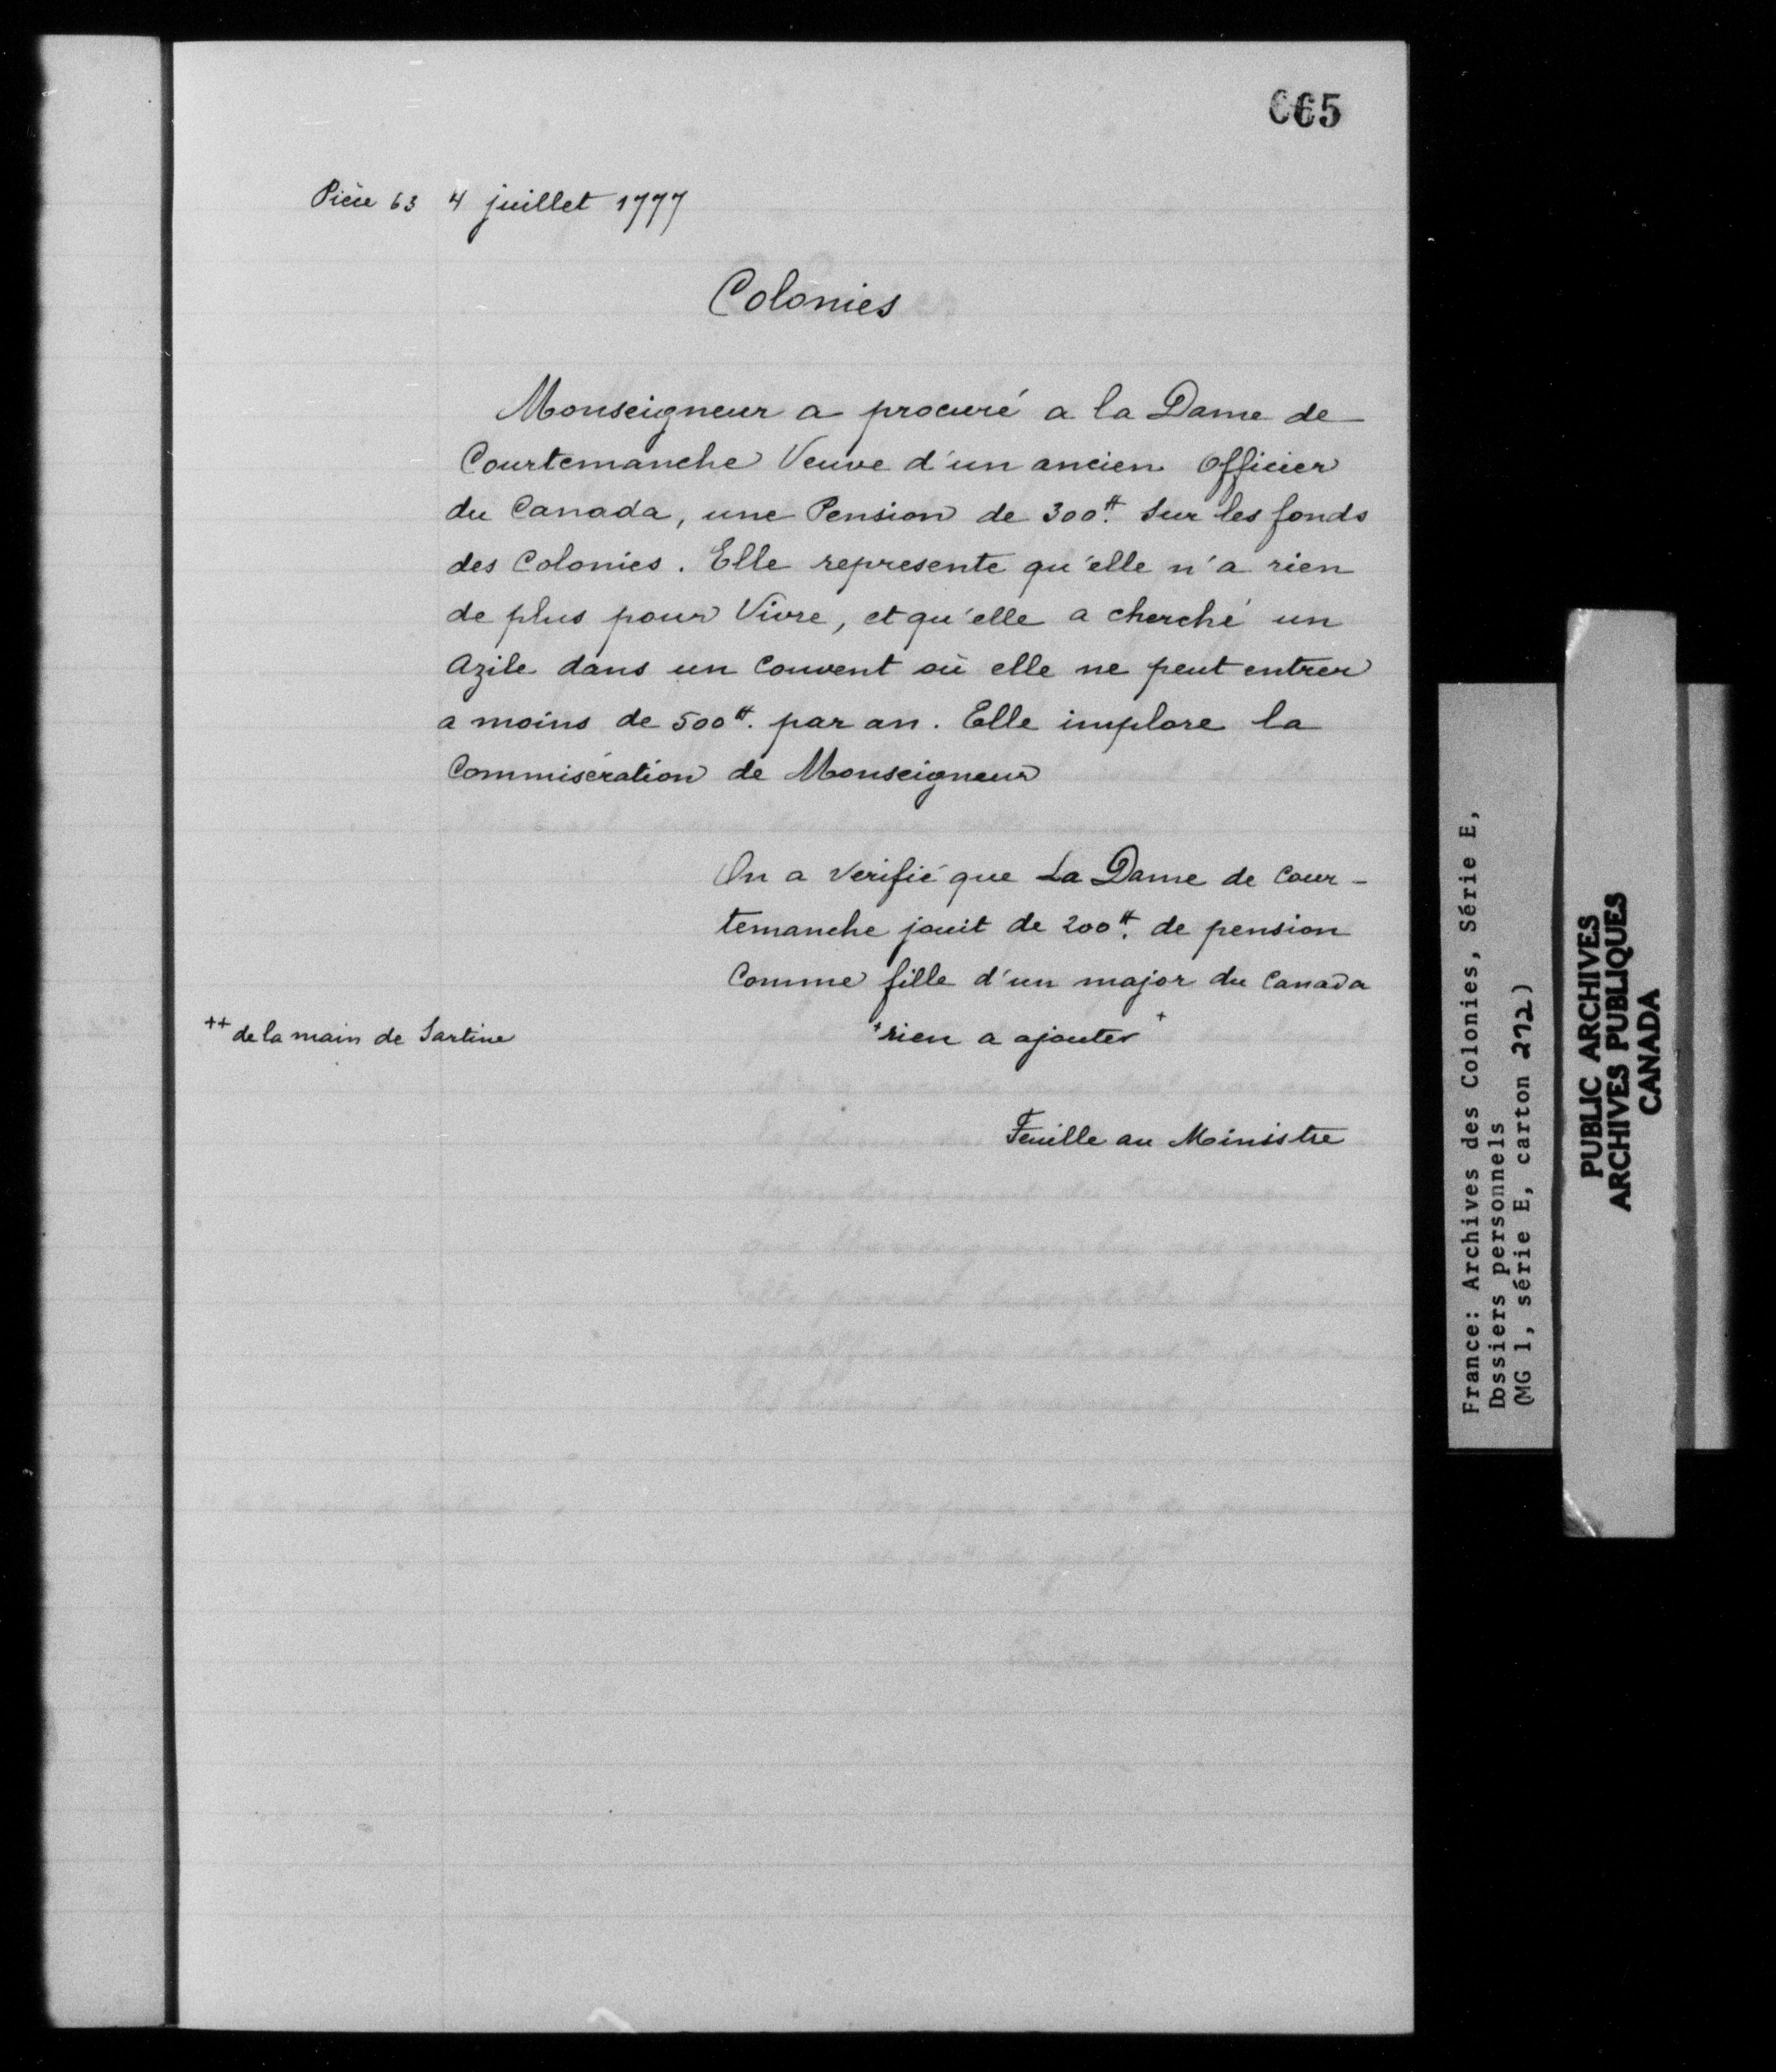 665
Pièce 63 4 juillet 1777
Colonies
Monseigneur a procuré a la Dame de
Courtemanche Veuve d'un ancien Officier
du Canada, une Pension de 300₶. Sur les fonds
des Colonies. Elle represente qu'elle n'a rien
de plus pour Vivre, et qu'elle a cherché un
Azile dans un Couvent où elle ne peut entrer
a moins de 500₶. par an. Elle implore la
Commisération de Monseigneur
On a verifié que La Dame de Cour-
temanche jouit de 200₶. de pension
Comme fille d'un major du Canada
++ de la main de Sartine
+rien a ajouter+
Feuille au Ministre
France: Archives des Colonies, Série E,
Dossiers personnels
(MG 1, série E, carton 272)
PUBLIC ARCHIVES
ARCHIVES PUBLIQUES
CANADA